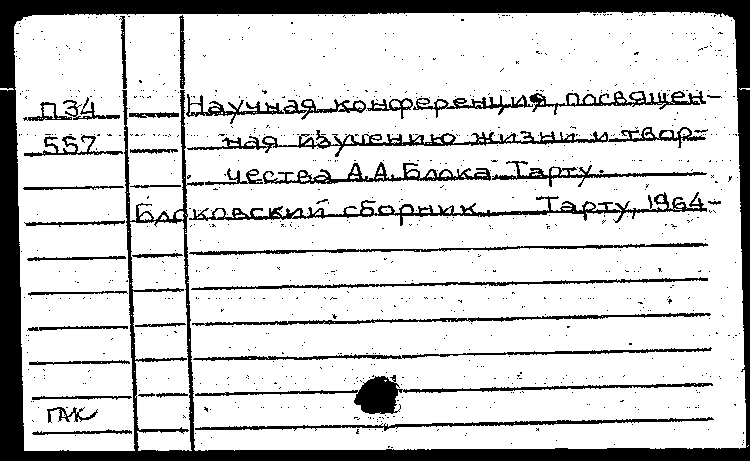 П34 Научная конференция, посвящен-
557 ная изучению жизни и твор-
чества А.А. Блока. Тарту.
Блоковский сборник. Тарту, 1964-
ГАК